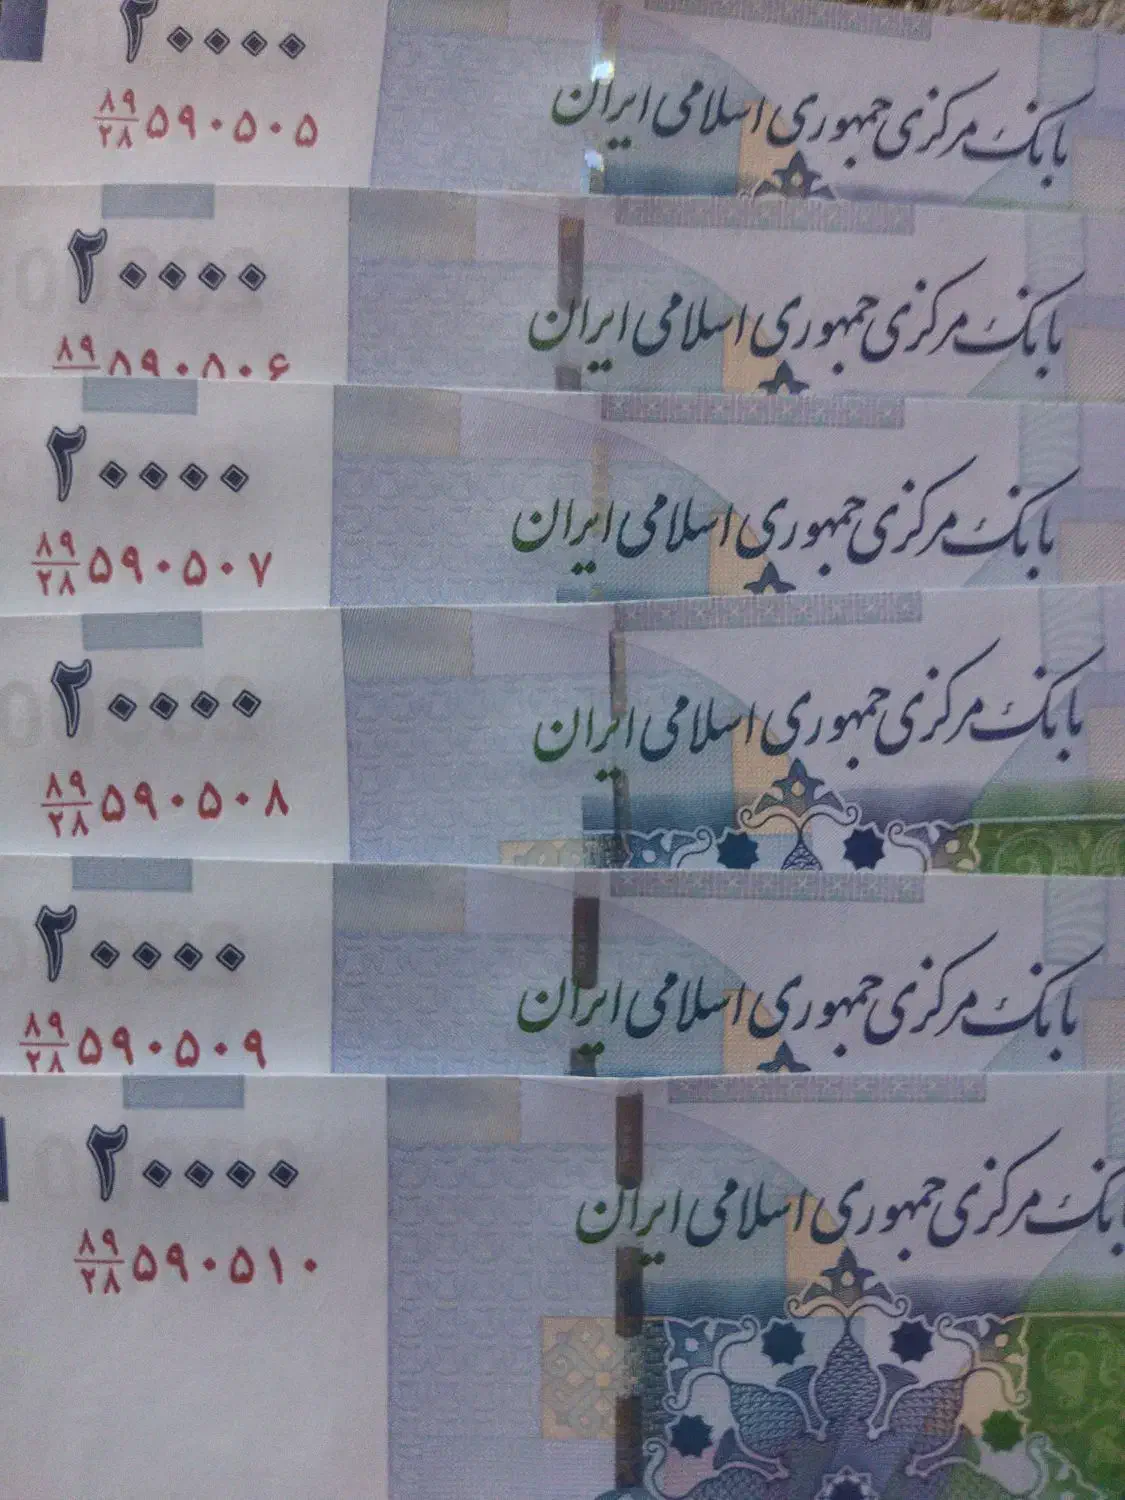 ۲۰۰۰۰
بانک مرکزی جمهوری اسلامی ایران
۸۹/۲۸ ۵۹۰۵۰۵
۲۰۰۰۰
بانک مرکزی جمهوری اسلامی ایران
۸۹ ۵۹۰۵۰۶
۲۰۰۰۰
بانک مرکزی جمهوری اسلامی ایران
۸۹/۲۸ ۵۹۰۵۰۷
۲۰۰۰۰
بانک مرکزی جمهوری اسلامی ایران
۸۹/۲۸ ۵۹۰۵۰۸
۲۰۰۰۰
بانک مرکزی جمهوری اسلامی ایران
۸۹/۲۸ ۵۹۰۵۰۹
۲۰۰۰۰
بانک مرکزی جمهوری اسلامی ایران
۸۹/۲۸ ۵۹۰۵۱۰